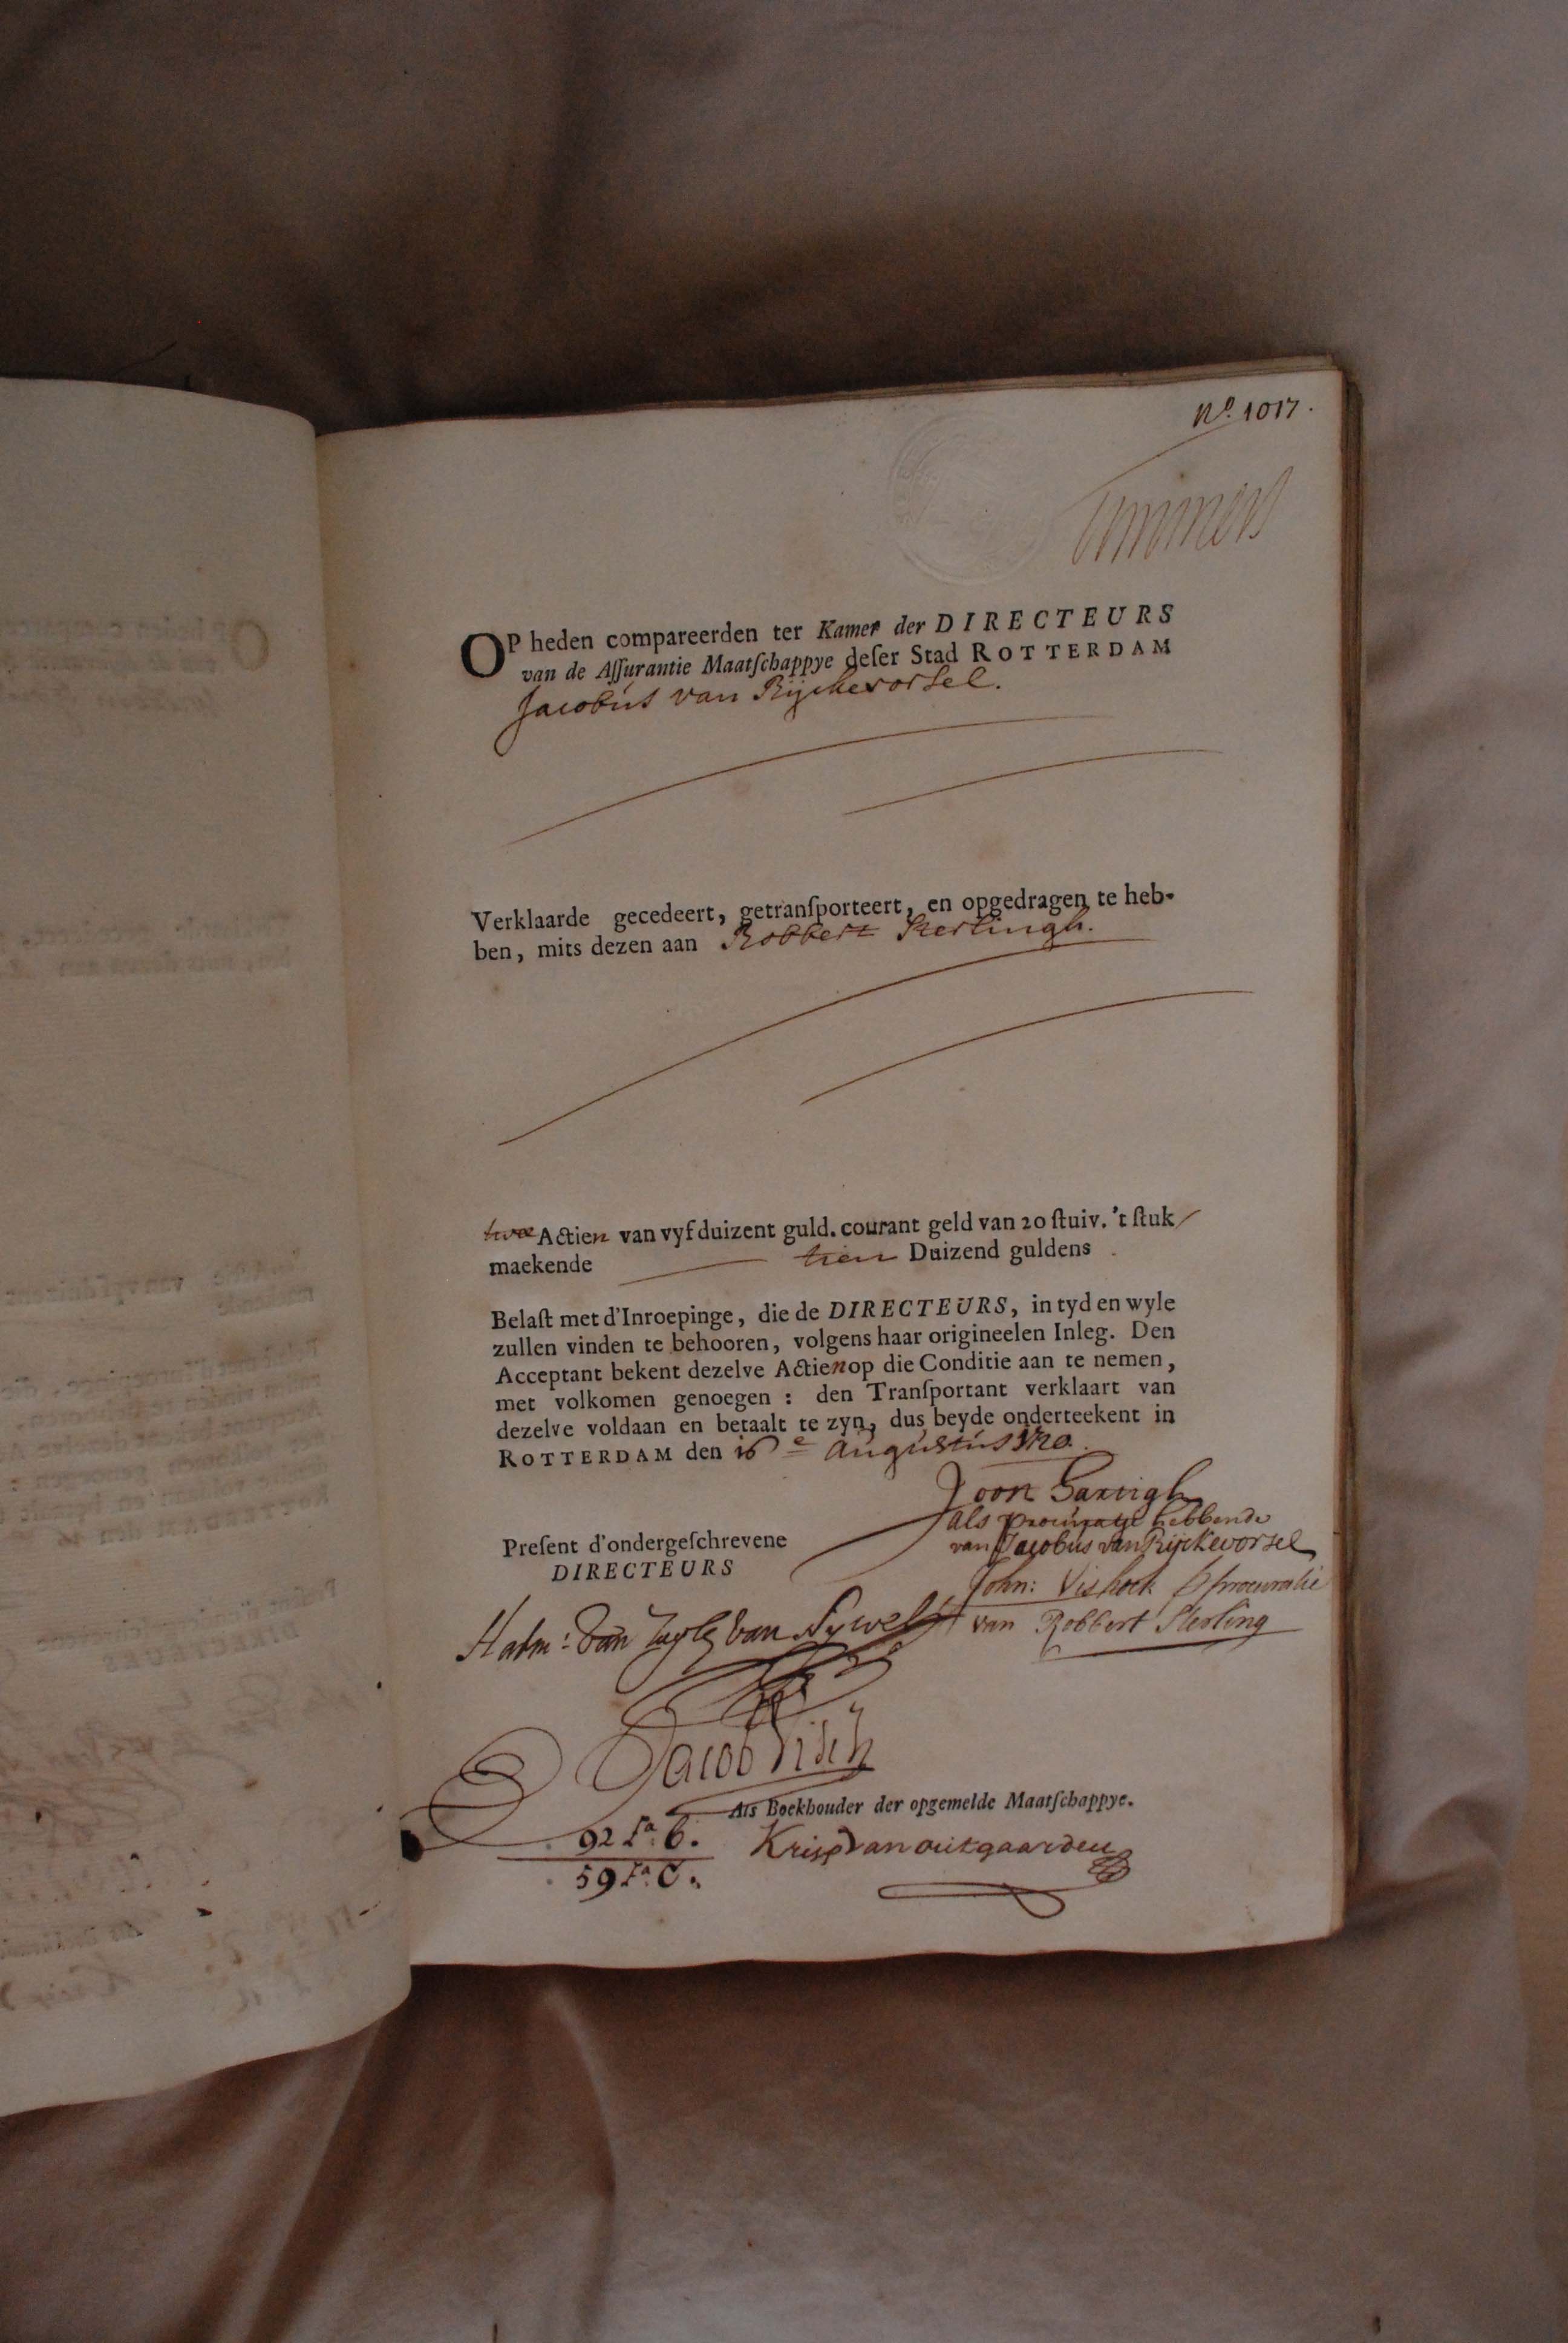 Nº. 1017.
OP heden compareerden ter Kamer der DIRECTEURS
van de Aſſurantie Maatſchappye deſer Stad ROTTERDAM
Jacobus van Rijckevorsel.
Verklaarde gecedeert, getranſporteert, en opgedragen te heb-
ben, mits dezen aan Robbert Sterlingh.
twee Actien van vyf duizent guld. courant geld van 20 ſtuiv. 't ſtuk
maekende tien Duizend guldens
Belaſt met d'Inroepinge, die de DIRECTEURS, in tyd en wyle
zullen vinden te behooren, volgens haar origineelen Inleg. Den
Acceptant bekent dezelve Actien op die Conditie aan te nemen,
met volkomen genoegen : den Tranſportant verklaart van
dezelve voldaan en betaalt te zyn, dus beyde onderteekent in
ROTTERDAM den 16e Augustus 1720.
Joost Hartigh
als procuratje hebbende
van Jacobus van Rijckevorsel
Preſent d'ondergeſchrevene
DIRECTEURS
John: Vishoek p procuratie
van Robbert Sterling
van Zuylen van Nyvelt
Jacob Visch
Als Boekhouder der opgemelde Maatſchappye.
92 Lª. B.
Krisp van outgaarden
59 Lª. C.